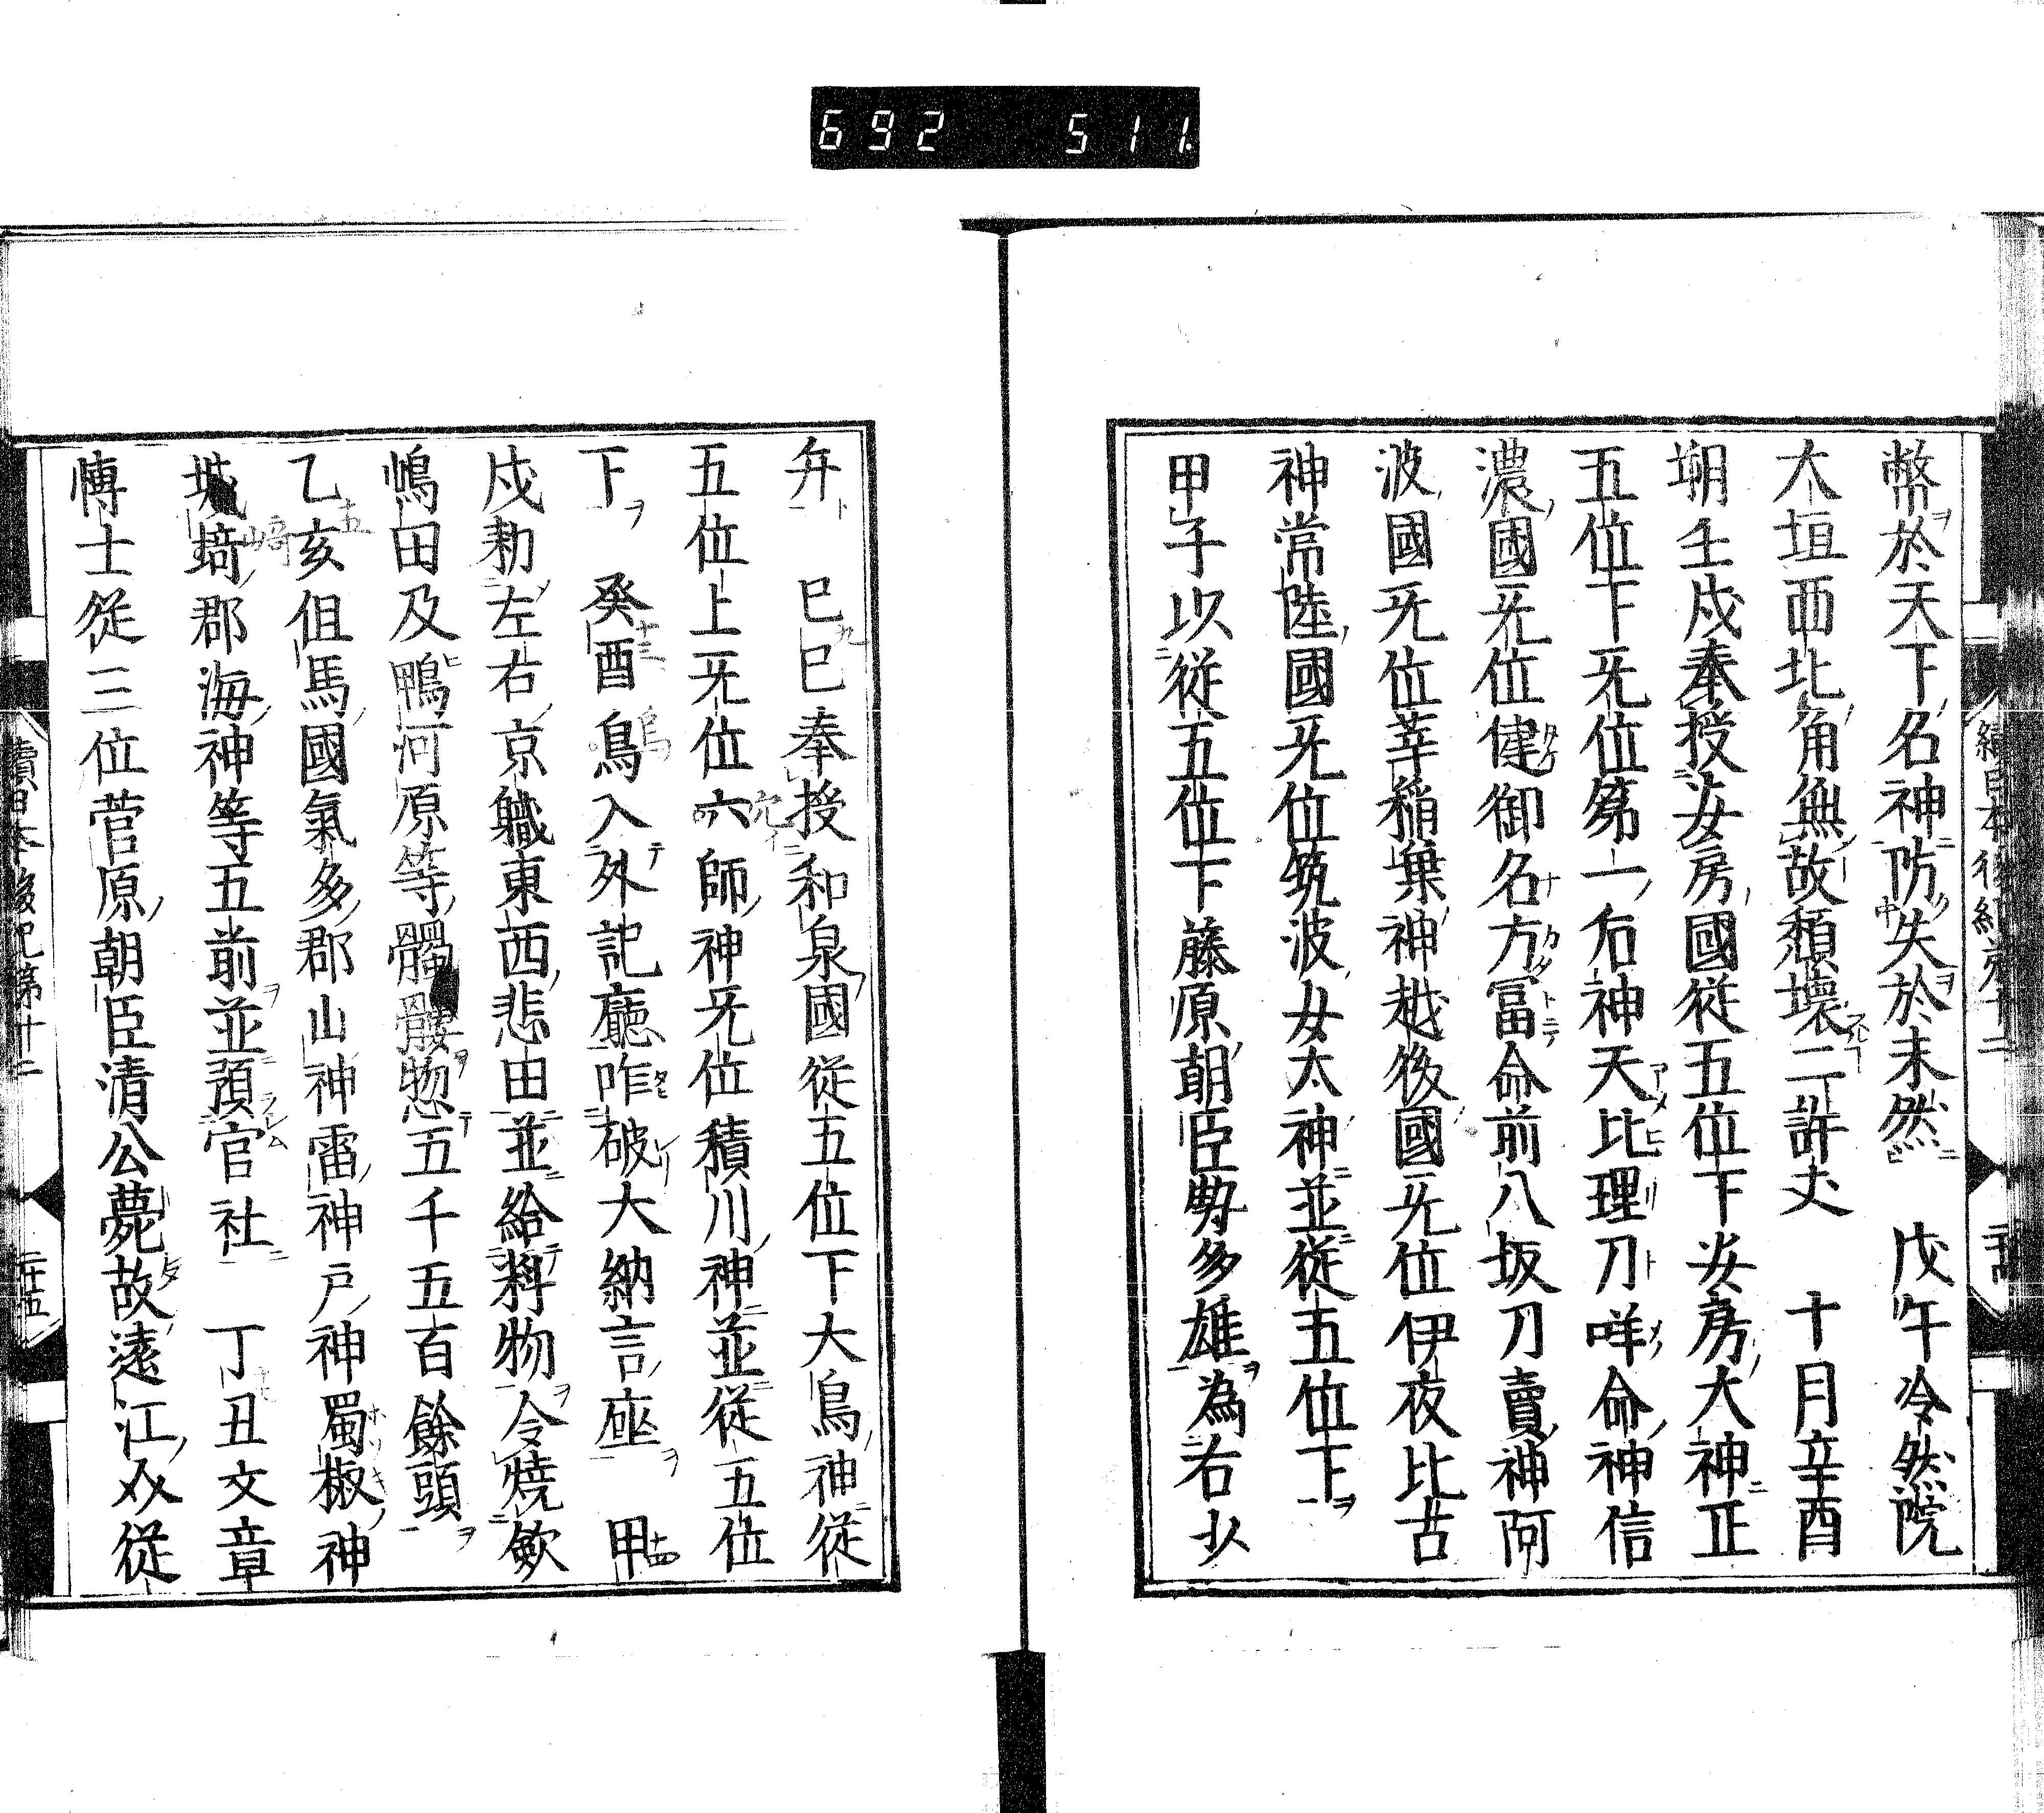 692 511
幣於天下名神防失於未然 戊午冷然院
大垣西北角無故頽壞二許丈 十月辛酉
朔壬戌奉授安房國從五位下安房大神正
五位下无位第一后神天比理刀咩命神信
濃國无位健御名方冨命前八坂刀賣神阿
波國无位葦稲葉神越後國无位伊夜比古
神常陸國无位筑波女大神並從五位下
甲子以從五位下藤原朝臣勢多雄為右少
弁 己巳奉授和泉國從五位下大鳥神從
五位上无位六師神无位積川神並從五位
下 癸酉鳥入外記廳咋破大納言座 甲
戌勅左右京職東西悲田並給料物令燒歛
嶋田及鴨河原等髑髏惣五千五百餘頭
乙亥但馬國氣多郡山神雷神戸神蜀椒神
城埼郡海神等五前並預官社 丁丑文章
博士從三位菅原朝臣清公薨故遠江介從
續日本後紀第十二 二十五